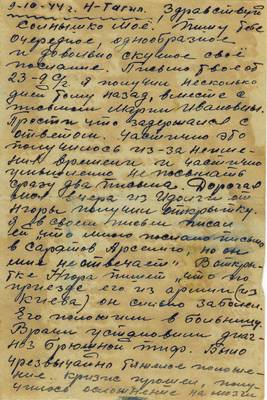 9-10-44 г. Н-Тагил. Здравствуй
Солнышко моё, Пишу тебе
очередное, однообразное
и довольно скучное своё
послание. Письмо твоё от
23-9 я получил несколько
дней тому назад, вместе с
письмом Марии Ивановны.
Прости что задержался с
ответом. Частично это
получилось из-за неиме-
ния времени и частично
умышленно не посылать
сразу два письма. Дорогая
моя Вчера из от
Игоря получил открытку.
я во своём писал
ей что мною послано письмо
в Саратов Арсению, но он
мне не отвечает". В открыт-
ке Игорь пишет, что по
приезде его из армии (из
Киева) он сильно заболел.
Его положили в больницу.
Врачи установили диаг-
ноз брюшной тиф. Было
чрезвычайно тяжелое положе-
ние. Кризис прошел, полу-
чилось осложнение на